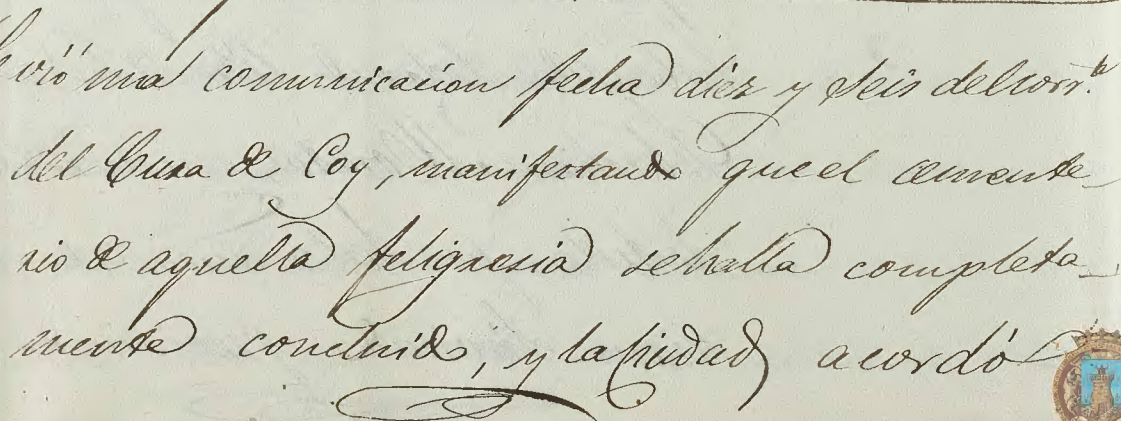 vió una comunicacion fecha diez y seis del corr.te
del Cura de Coy, manifestando que el cemente-
rio de aquella feligresia se halla completa-
mente concluido, y la Ciudad acordó